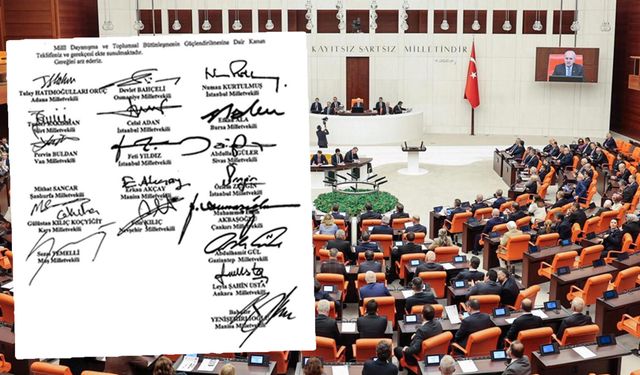 Milli Dayanışma ve Toplumsal Bütünleşmenin Güçlendirilmesine Dair Kanun
Teklifimiz ve gerekçesi ekte sunulmaktadır.
Gereğini arz ederiz.
Tulay HATIMOĞULLARI ORUÇ
Adana Milletvekili
Milletvekili
Pervin BULDAN
Van Milletvekili
Mithat SANCAR
Şanlıurfa Milletvekili
Gülüstan KILIÇ KOÇYİĞİT
Kars Milletvekili
Sezai TEMELLİ
Muş Milletvekili
Devlet BAHÇELİ
Osmaniye Milletvekili
Celal ADAN
İstanbul Milletvekili
Feti YILDIZ
İstanbul Milletvekili
Erkan AKÇAY
Manisa Milletvekili
KILIÇ
Nevşehir Milletvekili
Numan KURTULMUŞ
İstanbul Milletvekili
ALA
Bursa Milletvekili
Abdullah GÜLER
Sivas Milletvekili
Milletvekili
Muhammed Emin
AKBAŞOĞLU
Çankırı Milletvekili
Abdulhamit GÜL
Gaziantep Milletvekili
Leyla ŞAHİN USTA
Ankara Milletvekili
Bahadır
YENİŞEHİRLİOĞLU
Manisa Milletvekili
KAYITSIZ ŞARTSIZ MİLLETİNDİR